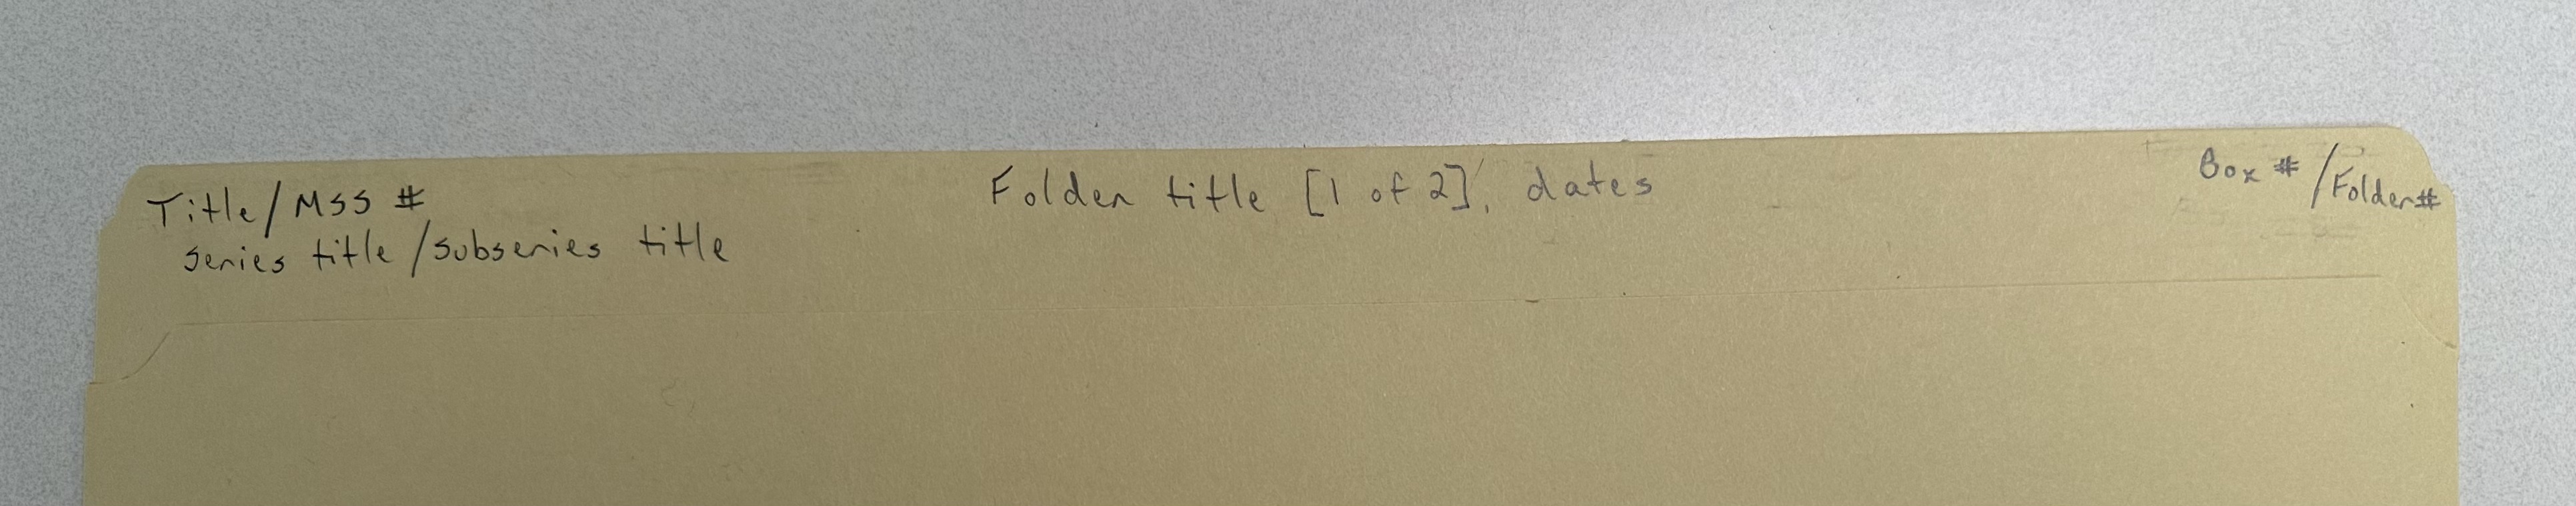 Title/MSS #
series title/subseries title
Folder title [1 of 2], dates
Box #/Folder#